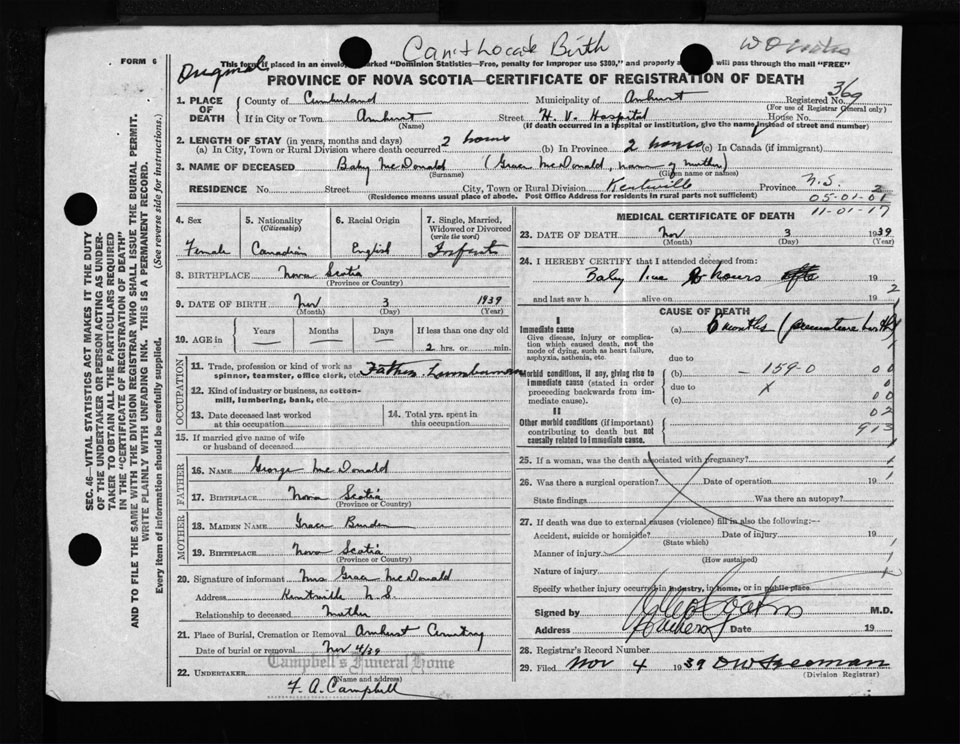 Can't Locate Birth
FORM 6
Original
This form if placed in an envelope marked "Dominion Statistics—Free, penalty for improper use $300," and properly will pass through the mail "FREE"
PROVINCE OF NOVA SCOTIA—CERTIFICATE OF REGISTRATION OF DEATH
1. PLACE OF DEATH County of Cumberland Municipality of Amherst Registered No. 369
(For use of Registrar General only)
If in City or Town Amherst Street H. V. Hospital House No.
(Name) (If death occurred in a hospital or institution, give the name instead of street and number)
2. LENGTH OF STAY (in years, months and days)
(a) In City, Town or Rural Division where death occurred 2 hours (b) In Province 2 hours (c) In Canada (if immigrant)
3. NAME OF DECEASED Baby McDonald (Grace McDonald, name of mother)
(Surname) (Given name or names)
RESIDENCE No. Street City, Town or Rural Division Kentville Province N.S. 2
(Residence means usual place of abode. Post Office Address for residents in rural parts not sufficient) 05-01-01
11-01-17
4. Sex 5. Nationality (Citizenship) 6. Racial Origin 7. Single, Married, Widowed or Divorced (write the word)
Female Canadian English Infant
8. BIRTHPLACE Nova Scotia
(Province or Country)
9. DATE OF BIRTH Nov 3 1939
(Month) (Day) (Year)
10. AGE in Years Months Days If less than one day old
2 hrs. or min.
OCCUPATION
11. Trade, profession or kind of work as spinner, teamster, office clerk, etc. Father Lumberman
12. Kind of industry or business, as cotton-mill, lumbering, bank, etc.
13. Date deceased last worked at this occupation 14. Total yrs. spent in this occupation
15. If married give name of wife or husband of deceased
FATHER
16. NAME George McDonald
17. BIRTHPLACE Nova Scotia
(Province or Country)
MOTHER
18. MAIDEN NAME Grace
19. BIRTHPLACE Nova Scotia
(Province or Country)
20. Signature of informant Mrs Grace McDonald
Address Kentville N.S.
Relationship to deceased Mother
21. Place of Burial, Cremation or Removal Amherst Cemetery
Date of burial or removal Nov 4/39
Campbell's Funeral Home
22. UNDERTAKER (Name and address)
F. A. Campbell
MEDICAL CERTIFICATE OF DEATH
23. DATE OF DEATH Nov 3 1939
(Month) (Day) (Year)
24. I HEREBY CERTIFY that I attended deceased from:
Baby hours 19
and last saw h alive on 19 2
CAUSE OF DEATH
I
Immediate cause (a) 6 months (premature birth)
Give disease, injury or complication which caused death, not the mode of dying, such as heart failure, asphyxia, asthenia, etc.
due to
Morbid conditions, if any, giving rise to immediate cause (stated in order proceeding backwards from immediate cause). (b) - 159-0 00
due to X
(c) 00
II 02
Other morbid conditions (if important) contributing to death but not causally related to immediate cause. 913
25. If a woman, was the death associated with pregnancy? 1
26. Was there a surgical operation? Date of operation 19
State findings Was there an autopsy?
27. If death was due to external causes (violence) fill in also the following:—
Accident, suicide or homicide? Date of injury 19
(State which)
Manner of injury 1
(How sustained)
Nature of injury
Specify whether injury occurred in industry, in home, or in public place
Signed by M.D.
Address Date 19
28. Registrar's Record Number
29. Filed Nov 4 1939 DW Freeman
(Division Registrar)
SEC. 46—VITAL STATISTICS ACT MAKES IT THE DUTY OF THE UNDERTAKER OR PERSON ACTING AS UNDERTAKER TO OBTAIN ALL THE PARTICULARS REQUIRED IN THE "CERTIFICATE OF REGISTRATION OF DEATH"
AND TO FILE THE SAME WITH THE DIVISION REGISTRAR WHO SHALL ISSUE THE BURIAL PERMIT.
WRITE PLAINLY WITH UNFADING INK. THIS IS A PERMANENT RECORD.
Every item of information should be carefully supplied. (See reverse side for instructions.)